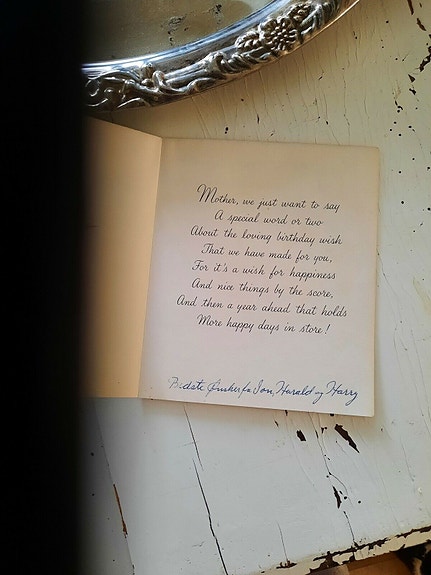 Mother, we just want to say
A special word or two
About the loving birthday wish
That we have made for you,
For it's a wish for happiness
And nice things by the score,
And then a year ahead that holds
More happy days in store!
Ønsker fra Jon, Harald og Harry